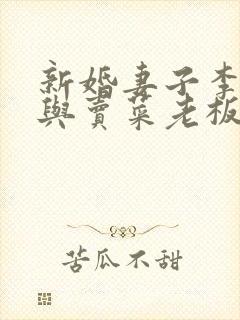 新婚妻子李
與賣菜老板
苦瓜不甜